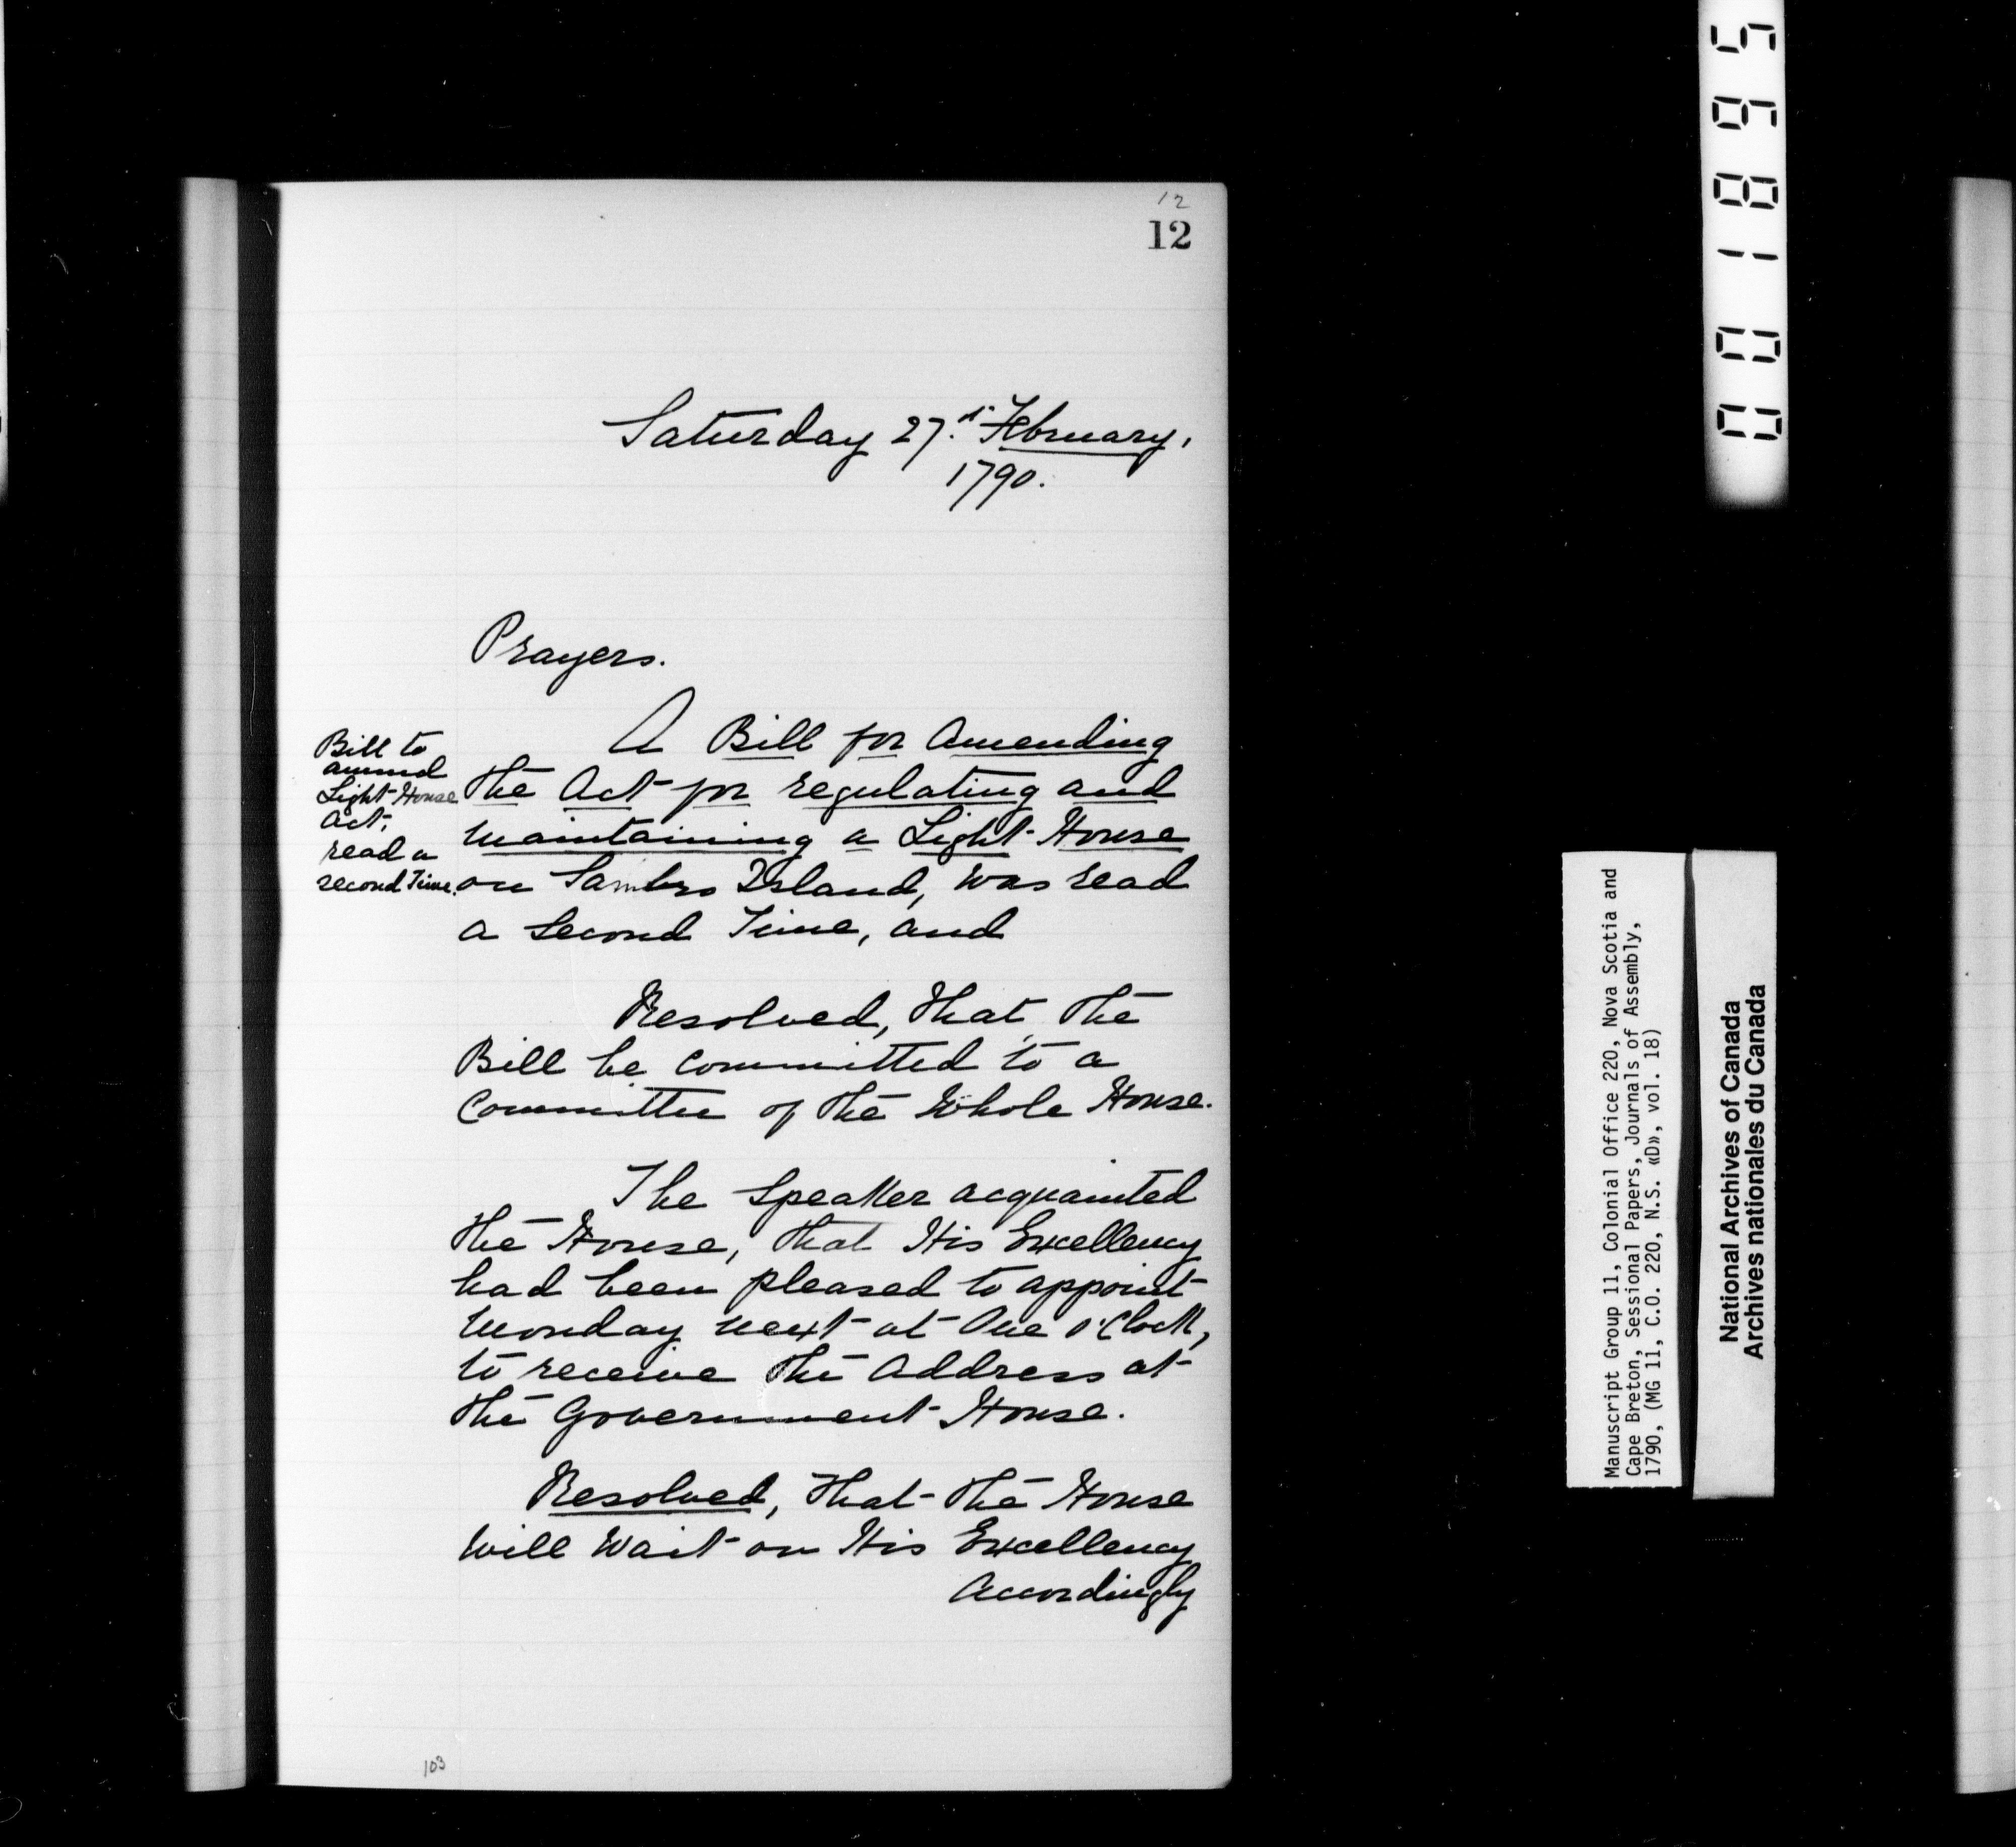 12
12
Saturday 27.th February,
1790.
Prayers.
Bill to
amend
Light House
Act,
read a
second Time.
A Bill for Amending
the Act for regulating and
maintaining a Light-House
on Sambro Island, was read
a second Time, and
Resolved, that, the
Bill be committed to a
Committee of the Whole House.
The Speaker acquainted
the House, that His Excellency
had been pleased to appoint
Monday next at One o'Clock,
to receive the Address at
the Government House.
Resolved, that the House
will Wait on His Excellency
Accordingly
103
001895
Manuscript Group 11, Colonial Office 220, Nova Scotia and
Cape Breton, Sessional Papers, Journals of Assembly,
1790, (MG 11, C.O. 220, N.S. «D», vol. 18)
National Archives of Canada
Archives nationales du Canada